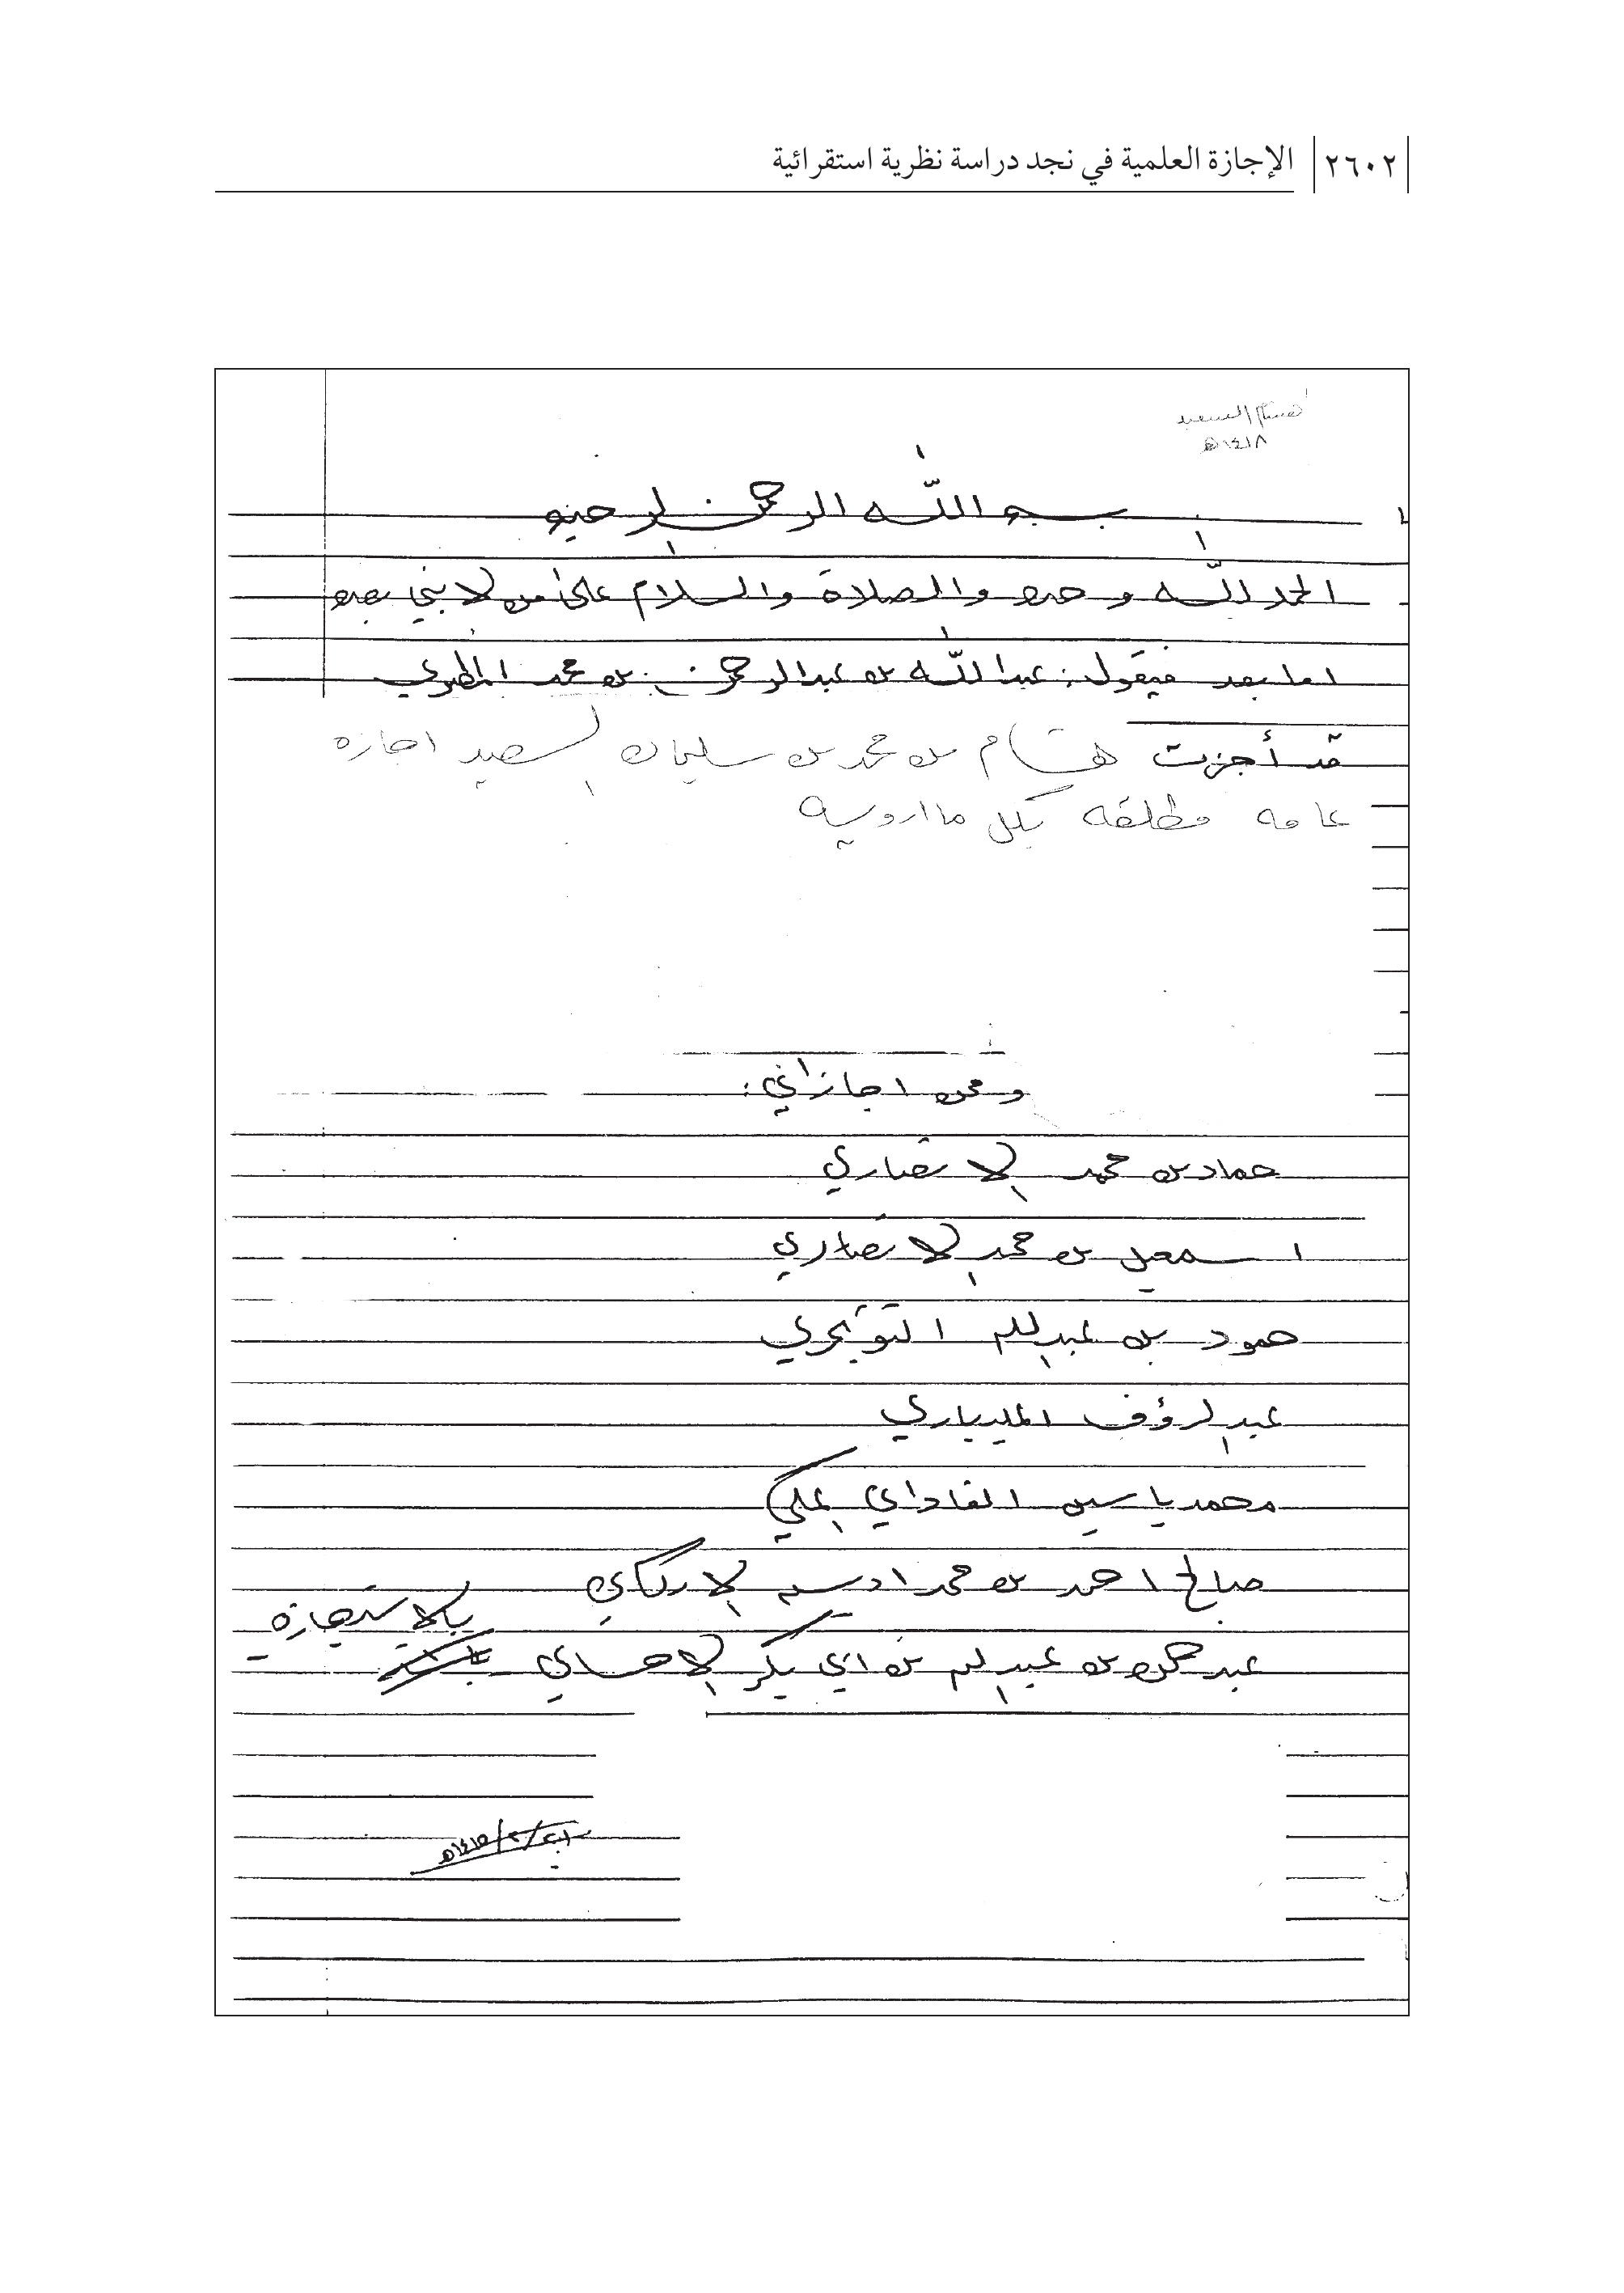 ٢٦٠٢ الإجازة العلمية في نجد دراسة نظرية استقرائية
هشام السعيد
١٤١٨هـ
بسم الله الرحمن الرحيم
الحمد لله وحده والصلاة والسلام على من لا نبي بعده
اما بعد فيقول: عبدالله بن عبدالرحمن بن محمد
قد أجزت هشام بن محمد بن سليمان السعيد اجازه
عامه مطلقه بكل ما ارويه
وممن اجازني:
حماد بن محمد الانصاري
اسمعيل بن محمد الانصاري
حمود بن عبدالله التويجري
عبدالرؤف المليباري
محمد ياسين الفاداني المكي
صالح احمد بن محمد ادريس الاركاني
عبدالرحمن بن عبدالله بن ابي بكر الاحسائي بالاستجازة